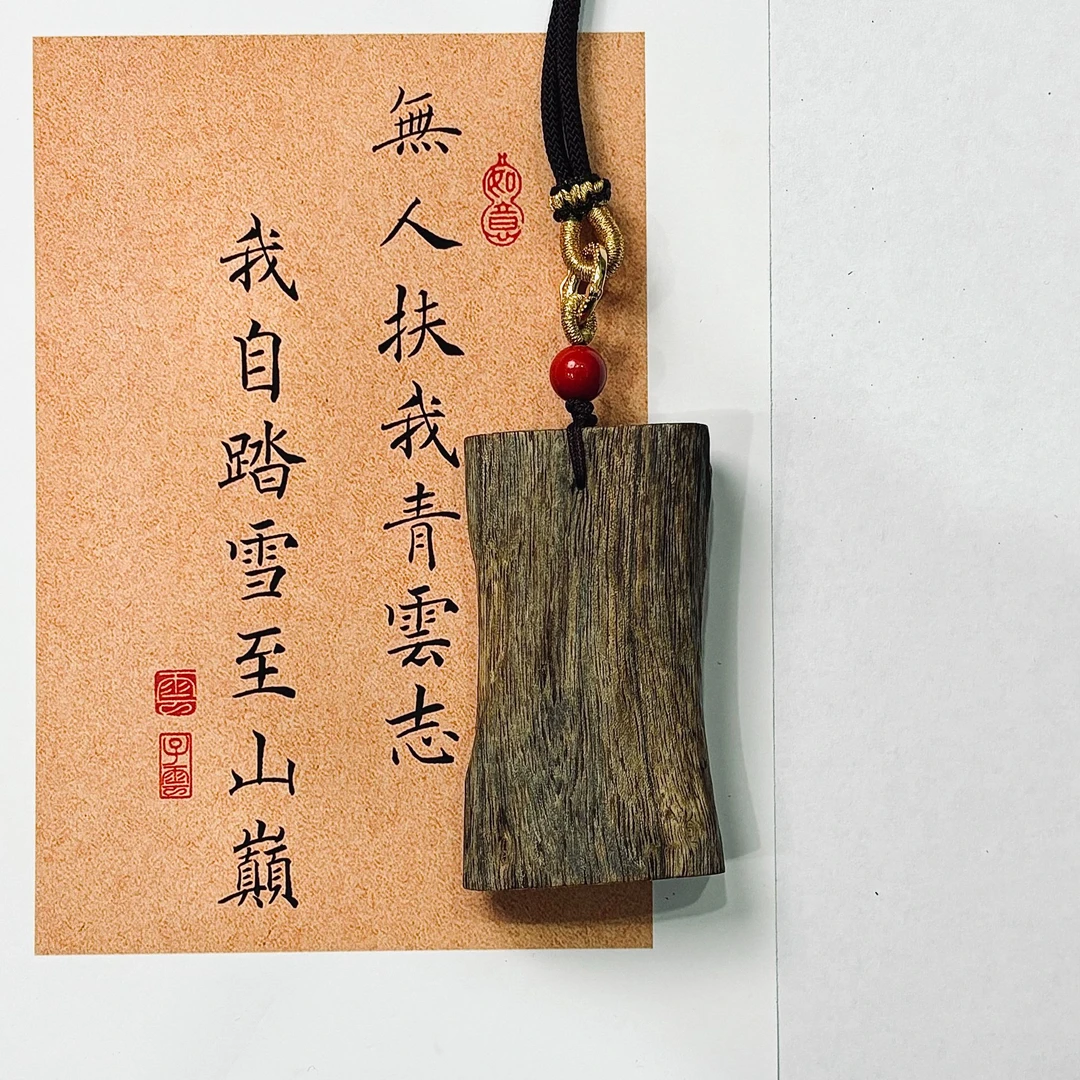 如意
無人扶我青雲志
我自踏雪至山巔
雲
子雲